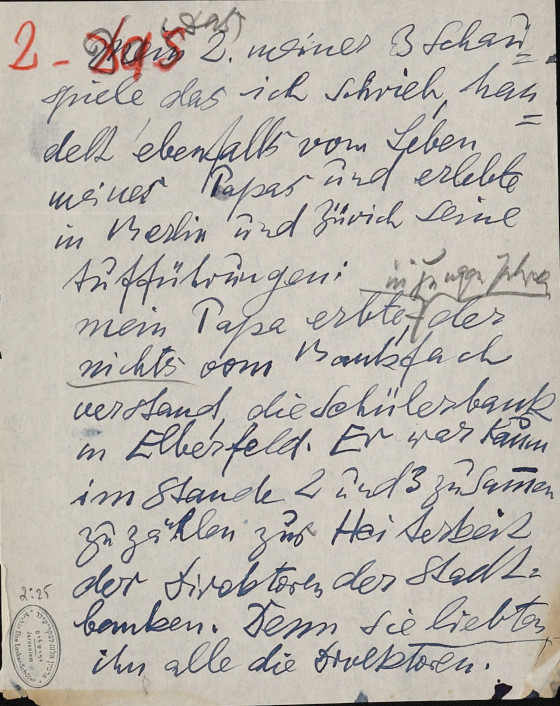 2 - 395 (Das)
Mein 2. meiner 3 Schau=
spiele das ich schrieb, han
=
delt ebenfalls vom Leben
meines Papas und erlebte
in Berlin und Zürich seine
Aufführungen:
in jungen Jahren
mein Papa erbte, der
nichts vom Bankfach
verstand, die Schülerbank
in Elberfeld. Er war kaum
im Stande 2 und 3 zusammen
zu zählen zur Heiterkeit
der Direktoren der Stadt=
banken. Denn sie liebten
ihn alle die Direktoren.
2:25
Jerusalem